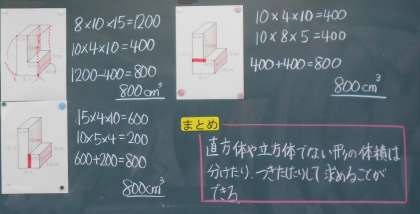 8×10×15=1200
10×4×10=400
1200-400=800
800cm³
15×4×10=600
10×5×4=200
600+200=800
800cm³
10×4×10=400
10×8×5=400
400+400=800
800cm³
まとめ
直方体や立方体でない形の体積は
分けたり、つぎたしたりして求めることが
できる。